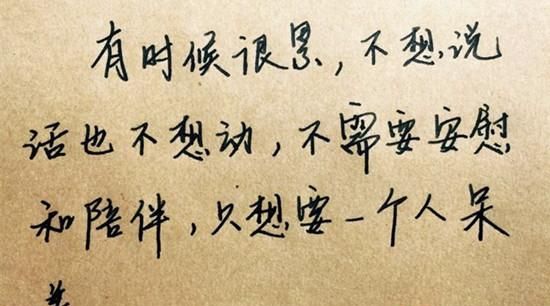 有时候很累，不想说
话也不想动，不需要安慰
和陪伴，只想要一个人呆